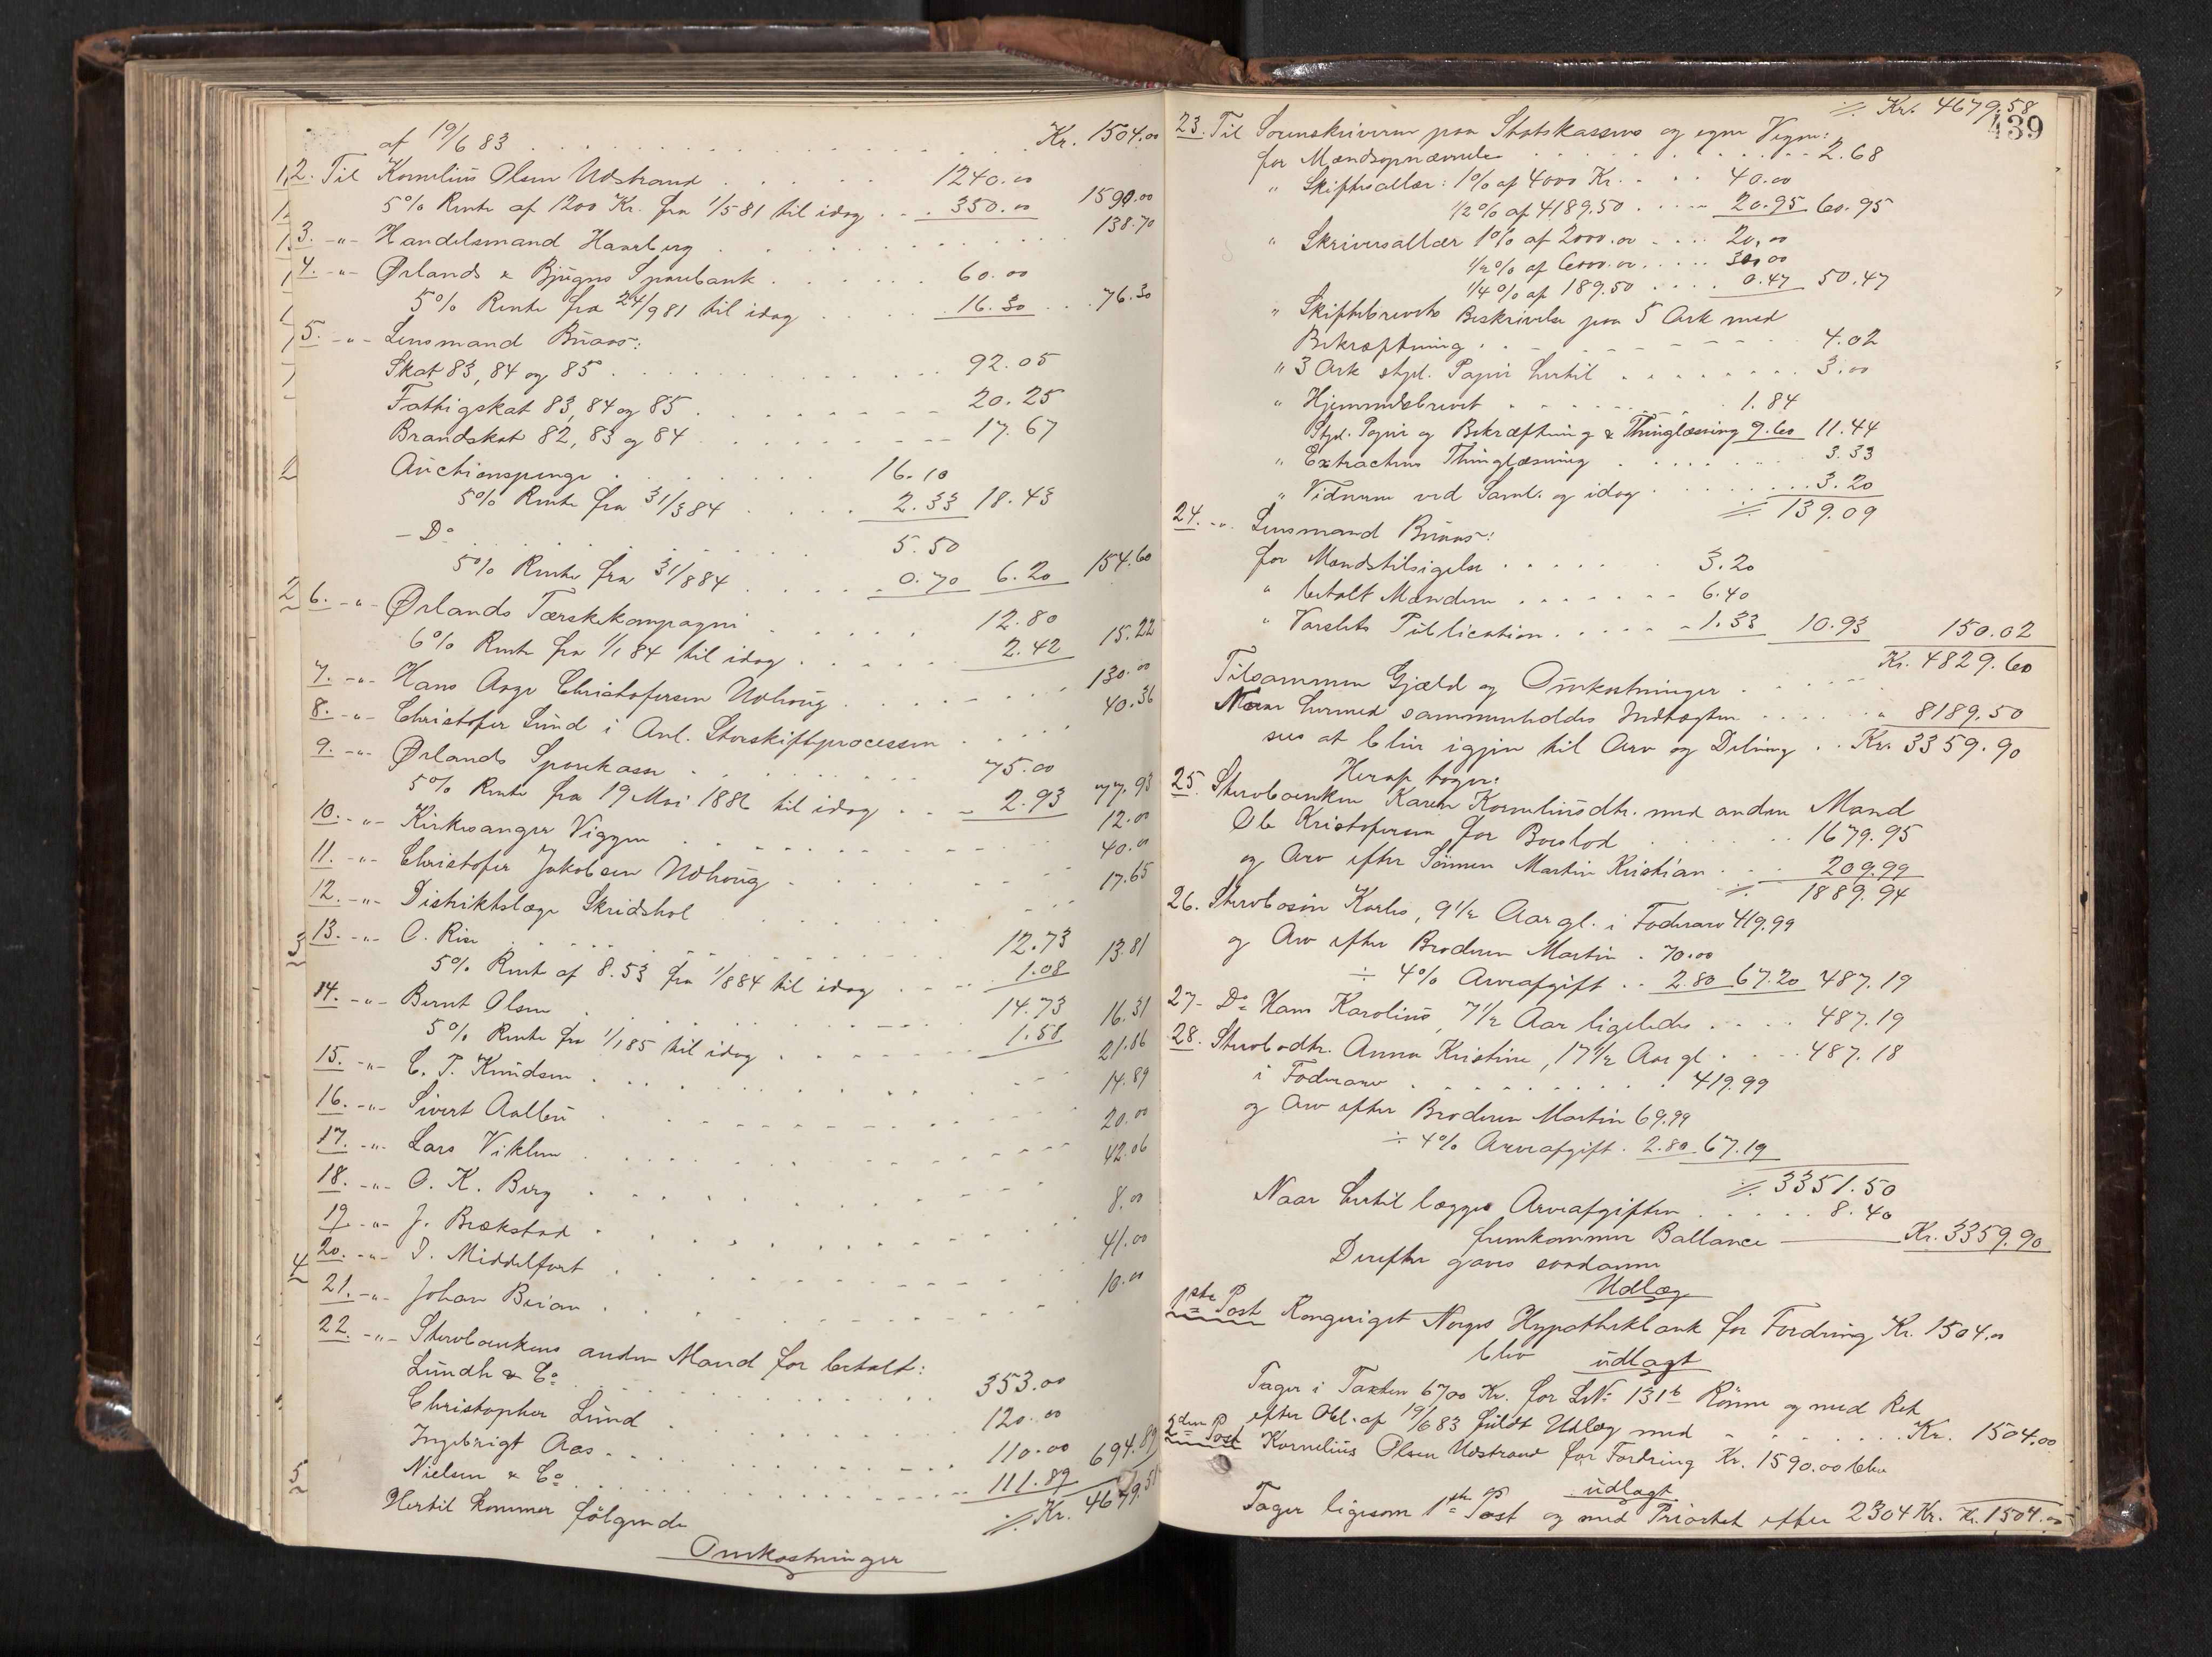 af 19/6 83 . . . Kr. 1504.00
2. Til Kornelius Olsen Udstrand . . . 1240.00
5% Rente af 1200 Kr. fra 1/5 81 til idag . . . 350.00 1590.00
3. -"- Handelsmand Haarberg . . . 138.70
4. -"- Ørlands & Bjugns Sparebank . . . 60.00
5% Rente fra 24/9 81 til idag . . . 16.30 76.30
5. -"- Lensmand Buaas:
Skat 83, 84 og 85 . . . 92.05
Fattigskat 83, 84 og 85 . . . 20.25
Brandskat 82, 83 og 84 . . . 17.67
Auctionspenge . . . 16.10
5% Rente fra 31/3 84 . . . 2.33 18.43
- Do . . . 5.50
5% Rente fra 31/8 84 . . . 0.70 6.20 154.60
6. -"- Ørlands Tærskekompagni . . . 12.80
6% Rente fra 1/1 84 til idag . . . 2.42 15.22
7. -"- Hans Aage Christofersen Udhoug . . . 130.00
8. -"- Christofer Lund i Anl. Storskifteprocessen . . . 40.36
9. -"- Ørlands Sparekasse . . . 75.00
5% Rente fra 19 Mai 1886 til idag . . . 2.93 77.93
10. -"- Kirkesanger Viggen . . . 12.00
11. -"- Christofer Jakobsen Udhoug . . . 40.00
12. -"- Distriktslæge Skridshol . . . 17.65
13. -"- O. Risn . . . 12.73
5% Rente af 8.53 fra 1/8 84 til idag . . . 1.08 13.81
14. -"- Bernt Olsen . . . 14.73
5% Rente fra 1/1 85 til idag . . . 1.58 16.31
15. -"- C. P. Knudsen . . . 21.86
16. -"- Sivert Aalben . . . 14.89
17. -"- Lars Viklem . . . 20.00
18. -"- O. K. Berg . . . 42.06
19. -"- J. Brækstad . . . 8.00
20. -"- I. Middelfart . . . 41.00
21. -"- Johan Beian . . . 10.00
22. -"- Stervboenkens anden Mand for betalt:
Lundh & Co . . . 353.00
Christopher Lund . . . 120.00
Ingebrigt Aas . . . 110.00
Nielsen & Co . . . 111.89 694.89
Hertil kommer følgende ⁒ Kr. 4679.58
Omkostninger
⁒ Kr. 4679.58
439
23. Til Sorenskriveren paa Statskassens og egne Vegne:
for Mandsopnævnelse . . . 2.68
" Skiftesallær: 1% af 4000 Kr. . . . 40.00
1/2% af 4189.50 . . . 20.95 60.95
" Skriversallær 1% af 2000.00 . . . 20.00
1/2% af 6000.00 . . . 30.00
1/4% af 189.50 . . . 0.47 50.47
" Skiftebrevets Beskrivelse paa 5 Ark med
Bekræftning . . . 4.02
" 3 Ark stpl. Papir hertil . . . 3.00
" Hjemmelsbrevet . . . 1.84
Stpl. Papir og Bekræftning & Thinglæsning 9.60 11.44
" Extractens Thinglæsning . . . 3.33
" Vidnerne ved Saml. og idag . . . 3.20
⁒ 139.09
24. -"- Lensmand Buaas:
for Mandstilsigelse . . . 3.20
" betalt Mændene . . . 6.40
" Varslets Publication . . . 1.33 10.93 150.02
Tilsammen Gjæld og Omkostninger . . . Kr. 4829.60
Naar hermed sammenholdes Indtægten . . . " 8189.50
sees at blive igjen til Arv og Deling . . Kr. 3359.90
Heraf tager:
25. Stervboenken Karen Korneliusdtr. med anden Mand
Ole Kristofersen for Boeslod . . . 1679.95
og Arv efter Sønnen Martin Kristian . . . 209.99
⁒ 1889.94
26. Stervbosøn Karles, 9 1/2 Aar gl. i Fædrearv 419.99
og Arv efter Broderen Martin . 70.00
÷ 4% Arveafgift . . 2.80 67.20 487.19
27. Do Hans Karolius, 7 1/2 Aar ligeledes . . . 487.19
28. Stervbodtr. Anna Kristine, 17 1/2 Aar gl . . . 487.18
i Fædrearv . . . 419.99
og Arv efter Broderen Martin 69.99
÷ 4% Arveafgift . 2.80 67.19
⁒ 3351.50
Naar hertil lægges Arveafgiften . . . 8.40
fremkommer Ballance Kr. 3359.90
Derefter gaves saadanne
Udlæg
1ste Post Kongeriget Norges Hypothekbank for Fordring Kr. 1504.00
blev udlagt
Tager i Taxten 6700 Kr. for LNo 131b Rønne og med Ret
efter Obl. af 19/6 83 fuldt Udlæg med . . . Kr. 1504.00
2den Post Kornelius Olsen Udstrand for Fordring Kr. 1590.00 blev
udlagt
Tager ligesom 1ste Post og med Prioritet efter 2304 Kr. Kr. 1504.00